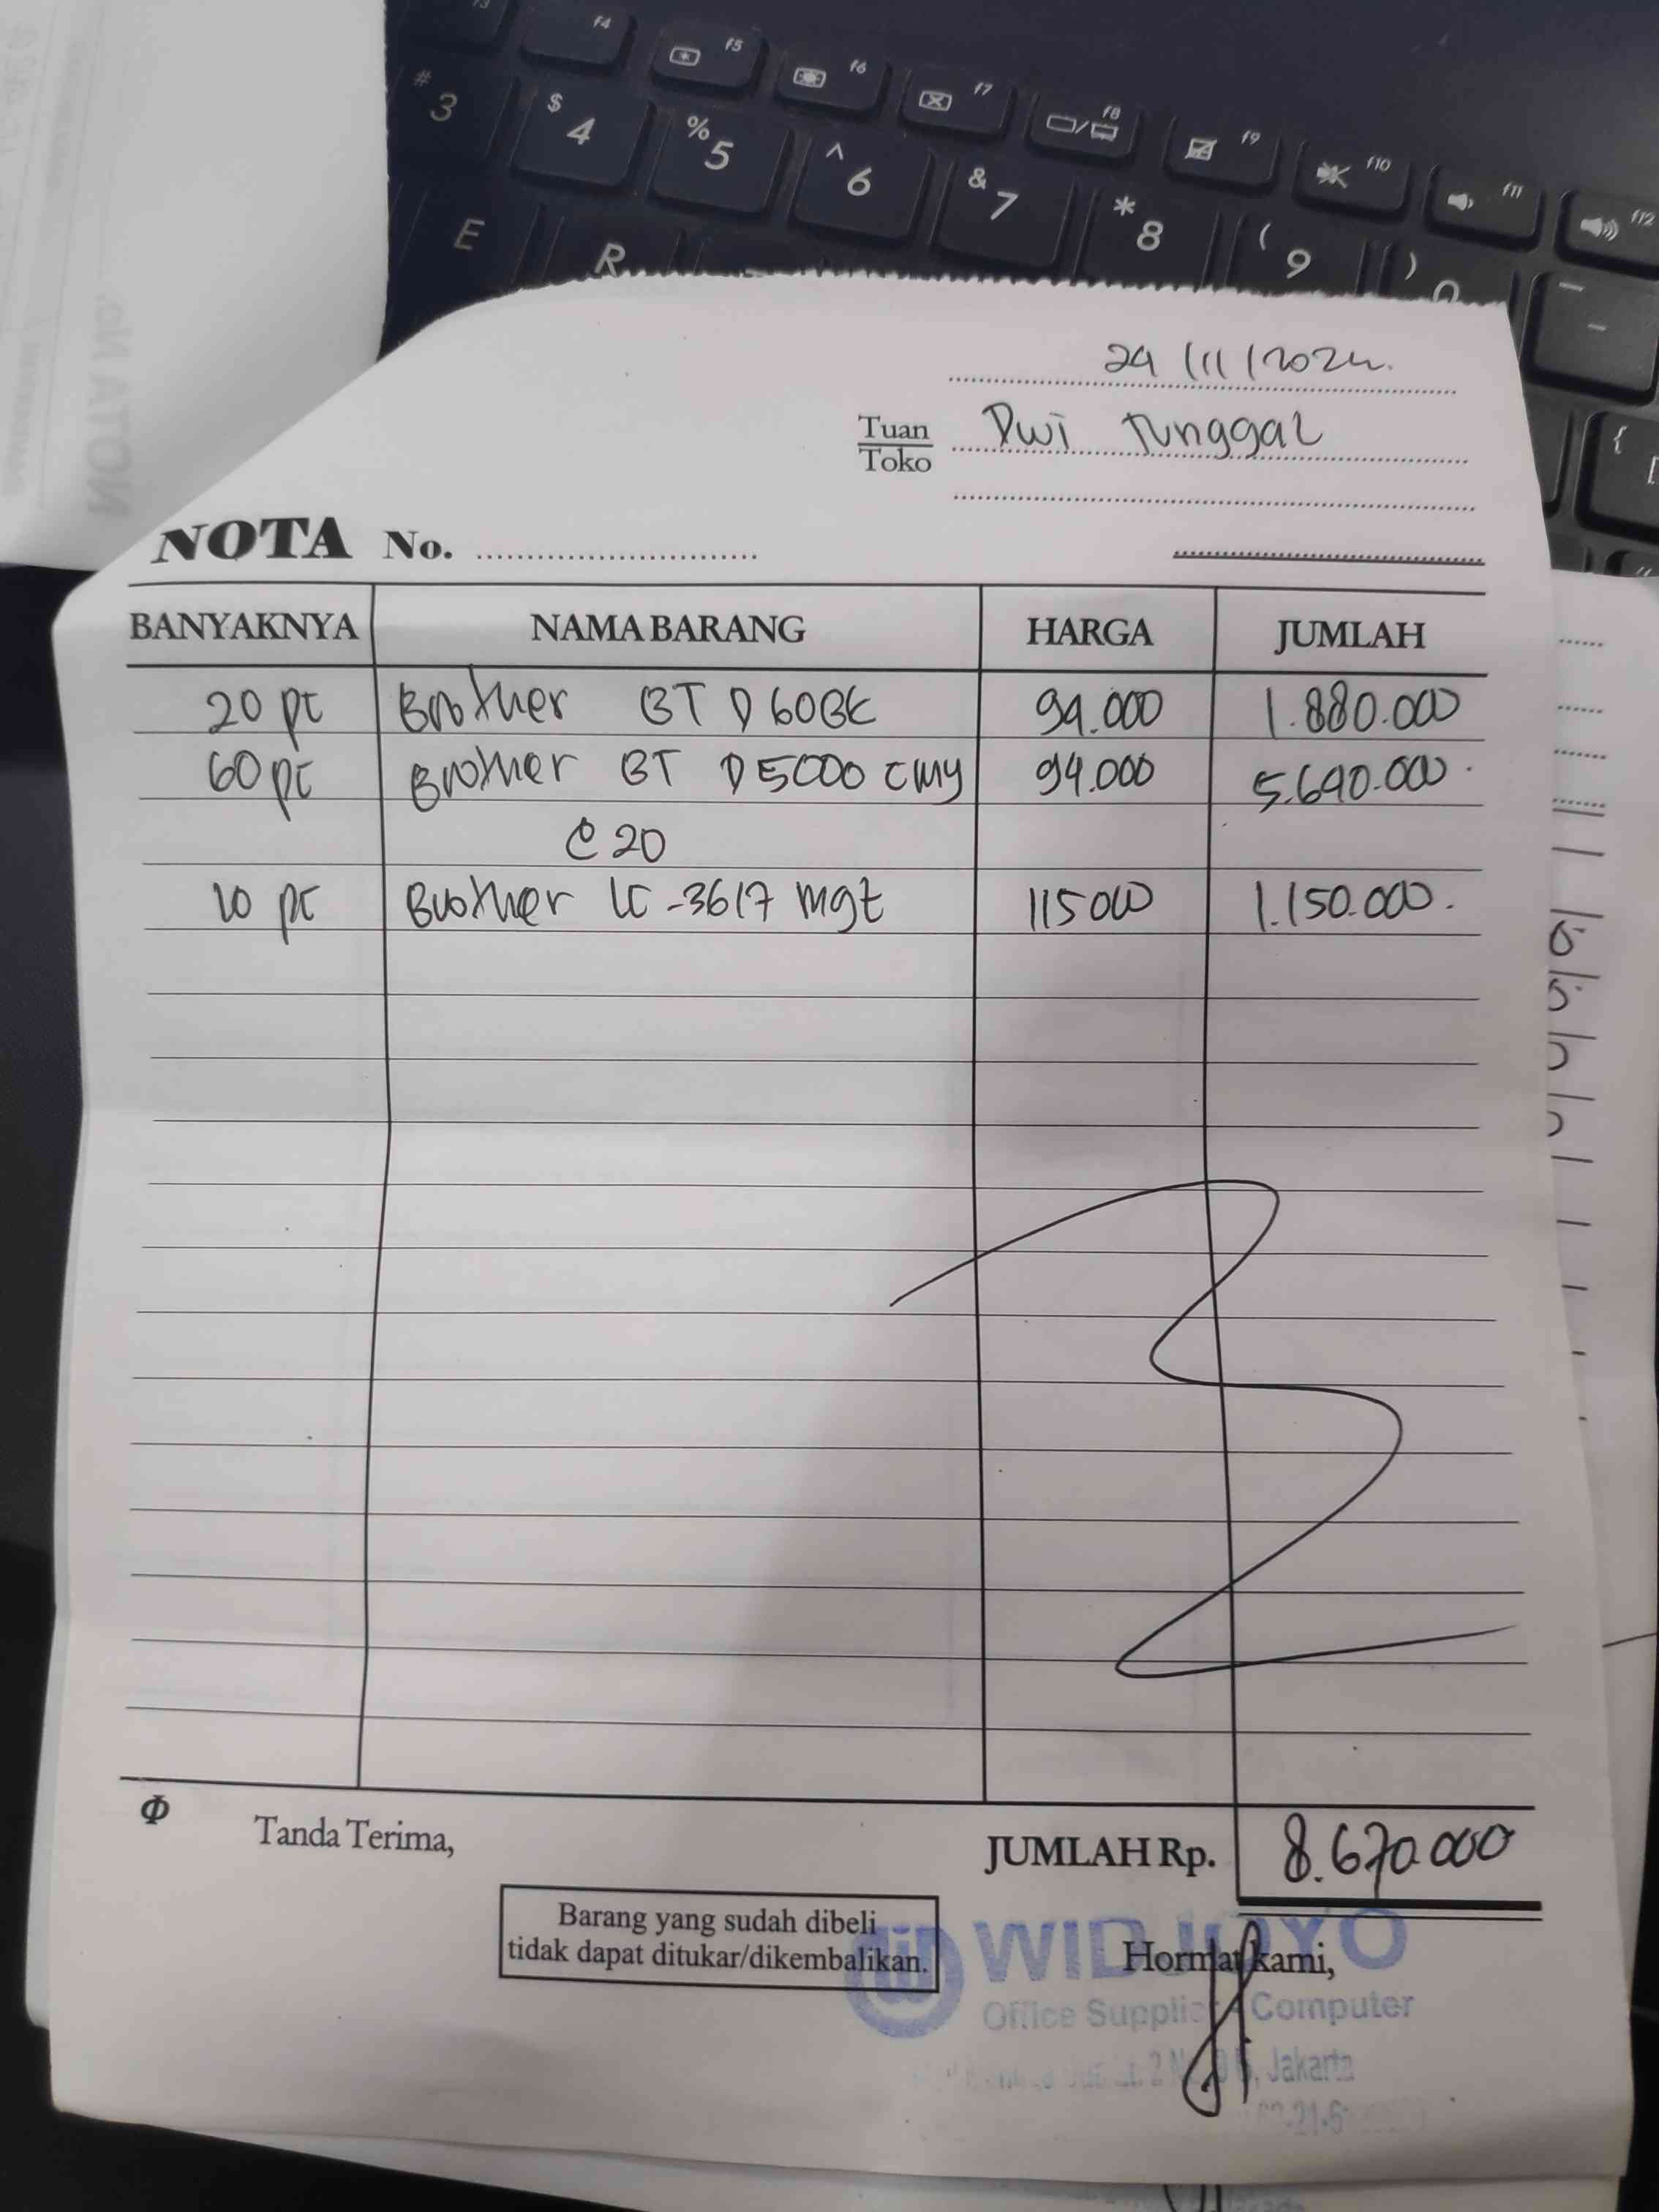 f4 f5 f6 f7 f8 f9 f10 f11 f12
# 3 $ 4 % 5 ^ 6 & 7 * 8 ( 9 ) 0 -
E R { [
NOTA No.
29/11/2024.
Tuan
Toko Dwi Tunggal
NOTA No.
BANYAKNYA NAMA BARANG HARGA JUMLAH
20 pc Brother BT D60BK 94.000 1.880.000
60 pc Brother BT D5000 cmy 94.000 5.640.000
@ 20
10 pc Brother LC-3617 mgt 115000 1.150.000.
Φ Tanda Terima, JUMLAH Rp. 8.670.000
Barang yang sudah dibeli
tidak dapat ditukar/dikembalikan.
Hormat kami,
WIDJOYO
Office Supplies & Computer
Jakarta